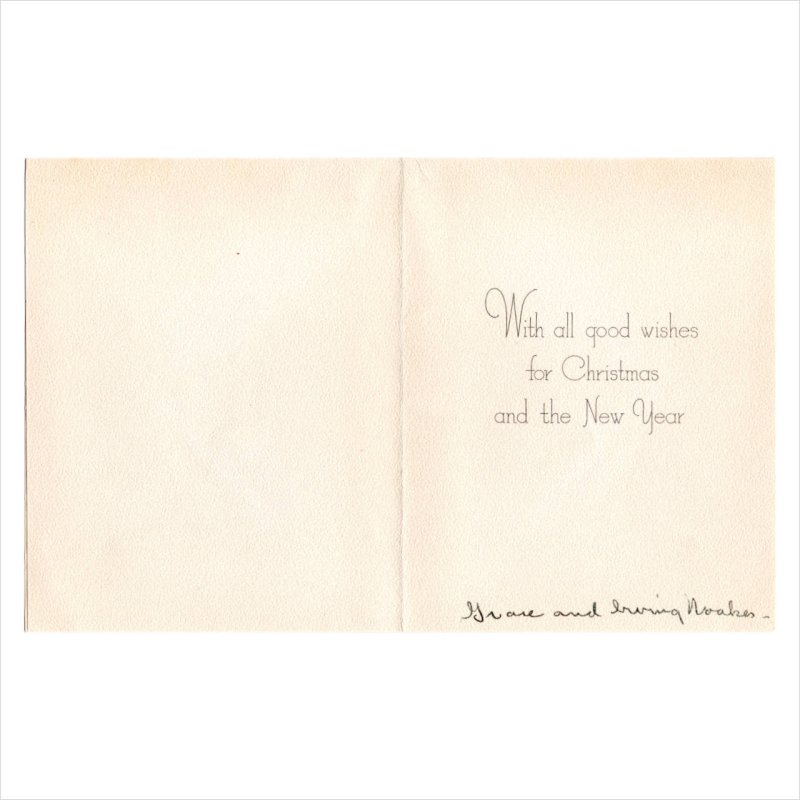 With all good wishes
for Christmas
and the New Year
Grace and Irving Noakes -